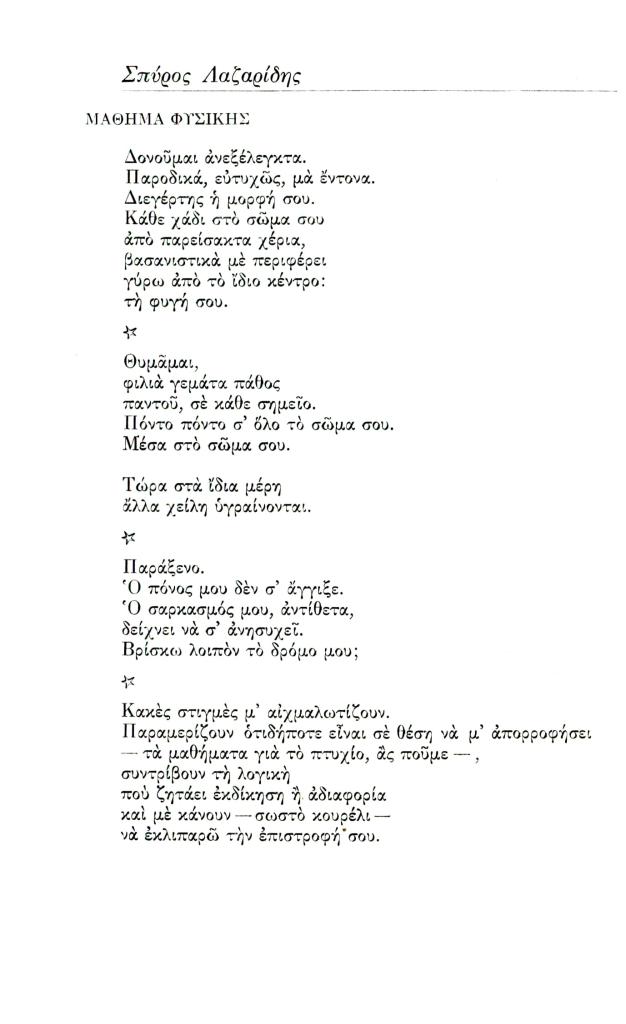 Σπύρος Λαζαρίδης
ΜΑΘΗΜΑ ΦΥΣΙΚΗΣ
Δονοῦμαι ἀνεξέλεγκτα.
Παροδικά, εὐτυχῶς, μὰ ἔντονα.
Διεγέρτης ἡ μορφή σου.
Κάθε χάδι στὸ σῶμα σου
ἀπὸ παρείσακτα χέρια,
βασανιστικὰ μὲ περιφέρει
γύρω ἀπὸ τὸ ἴδιο κέντρο:
τὴ φυγή σου.
Θυμᾶμαι,
φιλιὰ γεμάτα πάθος
παντοῦ, σὲ κάθε σημεῖο.
Πόντο πόντο σ' ὅλο τὸ σῶμα σου.
Μέσα στὸ σῶμα σου.
Τώρα στὰ ἴδια μέρη
ἄλλα χείλη ὑγραίνονται.
Παράξενο.
Ὁ πόνος μου δὲν σ' ἄγγιξε.
Ὁ σαρκασμός μου, ἀντίθετα,
δείχνει νὰ σ' ἀνησυχεῖ.
Βρίσκω λοιπὸν τὸ δρόμο μου;
Κακὲς στιγμὲς μ' αἰχμαλωτίζουν.
Παραμερίζουν ὁτιδήποτε εἶναι σὲ θέση νὰ μ' ἀπορροφήσει
— τὰ μαθήματα γιὰ τὸ πτυχίο, ἂς ποῦμε — ,
συντρίβουν τὴ λογικὴ
ποὺ ζητάει ἐκδίκηση ἢ ἀδιαφορία
καὶ μὲ κάνουν — σωστὸ κουρέλι —
νὰ ἐκλιπαρῶ τὴν ἐπιστροφή σου.